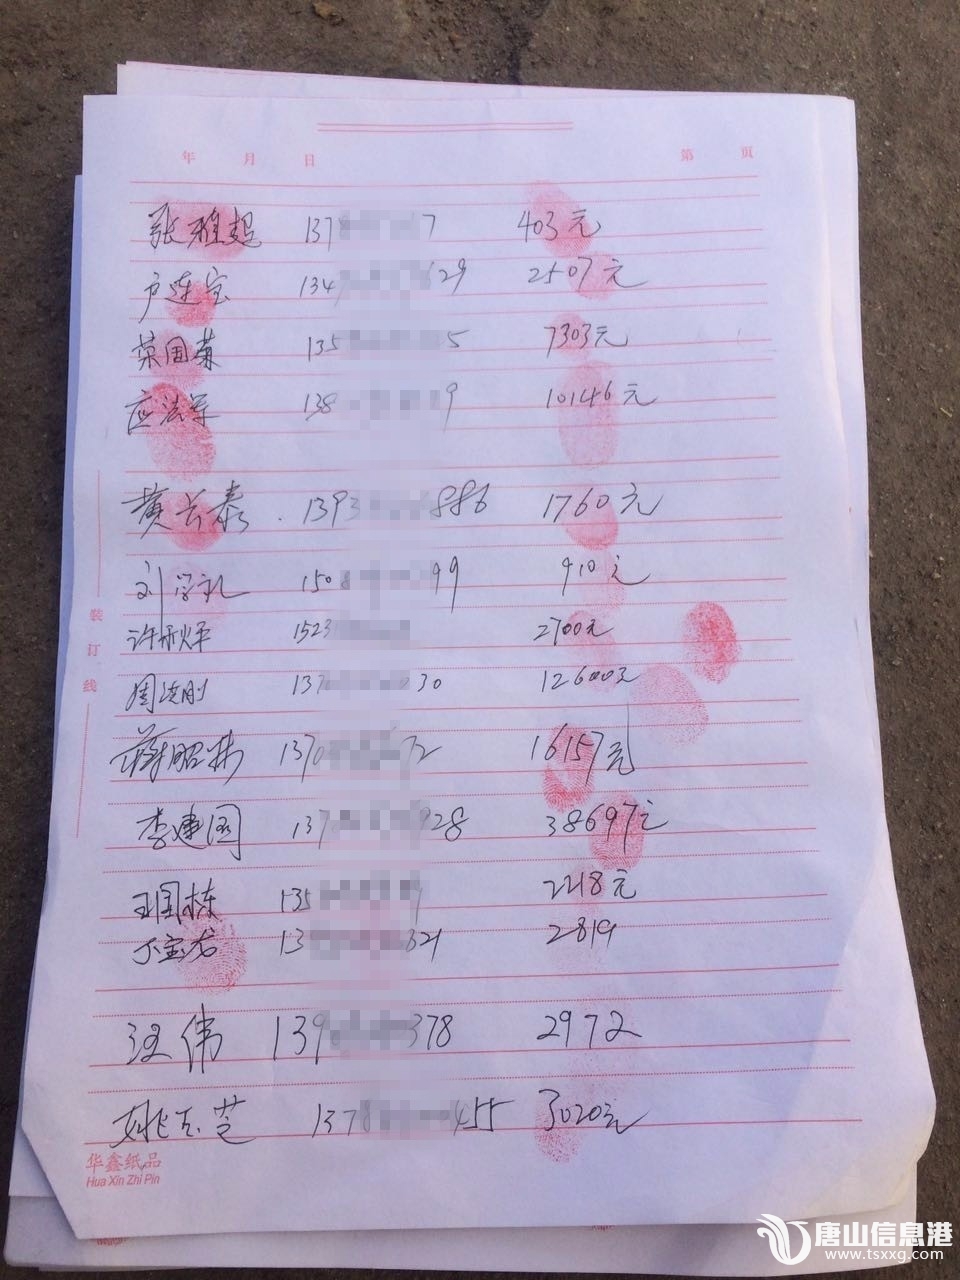 年 月 日 第 页
张雅超 1378 7 403元
户连宝 134 629 2507元
荣国菊 135 5 7303元
应法军 138 9 10146元
黄云泰 1393 886 1760元
刘学礼 150 99 910元
许 1523 2700元
周 137 030 12600元
蒋昭林 1370 72 16157元
李建国 137 928 38697元
王国栋 135 2218元
丁宝龙 13 321 2819
汪伟 139 378 2972
姚玉芝 1378 455 3020元
装订线
华鑫纸品
Hua Xin Zhi Pin
唐山信息港
www.tsxxg.com